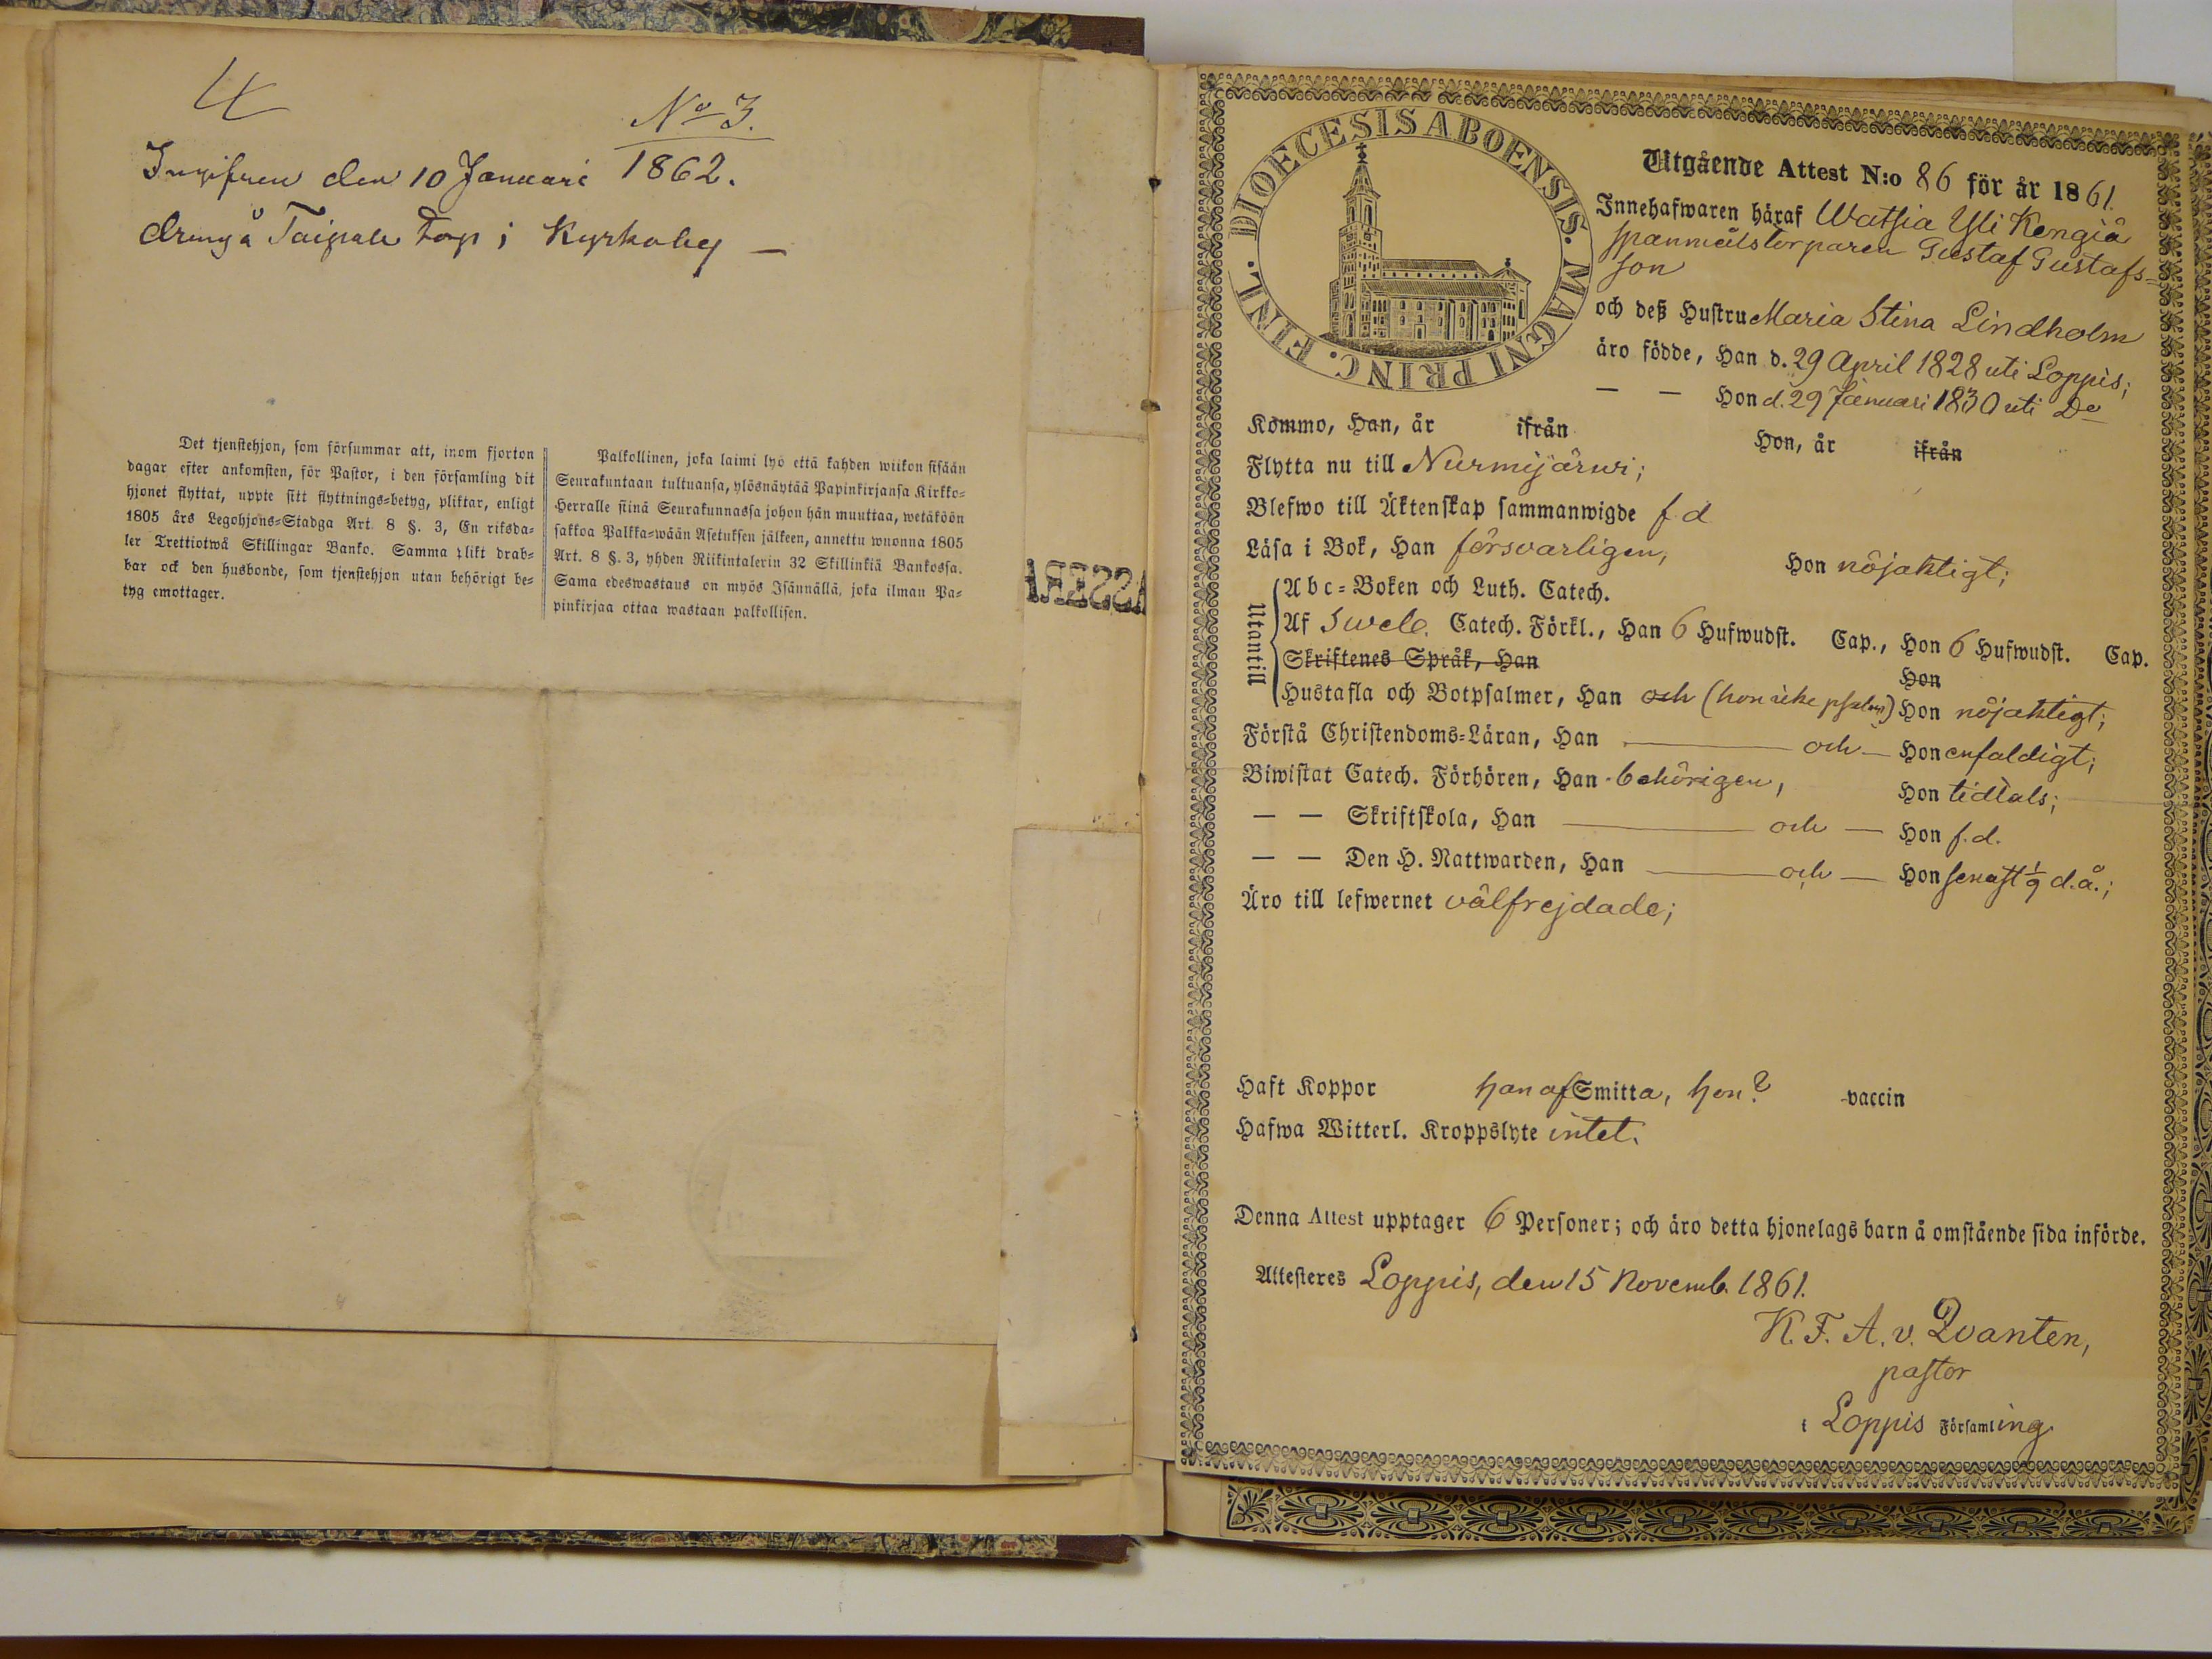 4
No 3.
Ingifven den 10 Januari 1862.
dreng å Taipale torp i Kyrkoby —
Det tjenstehjon, som försummar att, inom fjorton
dagar efter ankomsten, för Pastor, i den församling dit
hjonet flyttat, uppte sitt flyttnings=betyg, pliktar, enligt
1805 års Legohjons=Stadga Art. 8 §. 3, En riksda=
ler Trettiotwå Skillingar Banko. Samma plikt drab=
bar ock den husbonde, som tjenstehjon utan behörigt be=
tyg emottager.
Palkollinen, joka laimi lyö että kahden wiikon sisään
Seurakuntaan tultuansa, ylösnäytää Papinkirjansa Kirkko=
Herralle siinä Seurakunnassa johon hän muuttaa, wetäköön
sakkoa Palkka=wään Asetuksen jälkeen, annettu wuonna 1805
Art. 8 §. 3, yhden Riikintalerin 32 Skillinkiä Bankossa.
Sama edeswastaus on myös Isännällä, joka ilman Pa=
pinkirjaa ottaa wastaan palkollisen.
DIOECESIS ABOENSIS. MAGNI PRINC. FINL.
Utgående Attest N:o 86 för år 1861.
Innehafwaren häraf Watsia Yli Kengiä
spanmålstorparen Gustaf Gustafs=
son
och deß Hustru Maria Stina Lindholm
äro födde, Han d. 29 April 1828 uti Loppis;
— — Hon d. 29 Januari 1830 uti Do
Kommo, Han, år ifrån Hon, år ifrån
Flytta nu till Nurmijärwi;
Blefwo till Äktenskap sammanwigde f.d.
Läsa i Bok, Han försvarligen, Hon nöjaktigt;
Utantill
Abc=Boken och Luth. Catech.
Af Sweb. Catech. Förkl., Han 6 Hufwudst. Cap., Hon 6 Hufwudst. Cap.
Skriftenes Språk, Han Hon
Hustafla och Botpsalmer, Han och (hon icke psalm) Hon nöjaktigt;
Förstå Christendoms=Läran, Han — och — Hon enfaldigt;
Biwistat Catech. Förhören, Han behörigen, Hon tidtals;
— — Skriftskola, Han — och — Hon f.d.
— — Den H. Nattwarden, Han — och — Hon senast 1/9 d.å.;
Äro till lefwernet välfrejdade;
Haft Koppor han af Smitta, hon? vaccin
Hafwa Witterl. Kroppslyte intet.
Denna Attest upptager 6 Personer; och äro detta hjonelags barn å omstående sida införde.
Attesteres Loppis, den 15 Novemb. 1861.
K. F. A. v. Qvanten,
pastor
i Loppis Församling